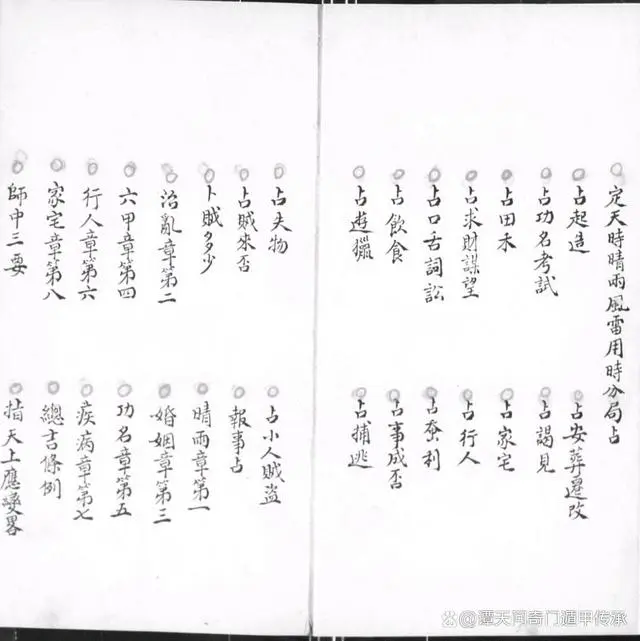 定天時晴雨風雷用時分局占
占起造
占安葬遷改
占功名考試
占謁見
占田禾
占家宅
占求財謀望
占行人
占口舌詞訟
占利
占飲食
占事成否
占遊獵
占捕逃
占失物
占小人賊盜
占賊來否
報事占
卜賊多少
晴雨章第一
治亂章第二
婚姻章第三
六甲章第四
功名章第五
行人章第六
疾病章第七
家宅章第八
總條例
師中三要
指天上應變畧
@譚天问奇门遁甲传承